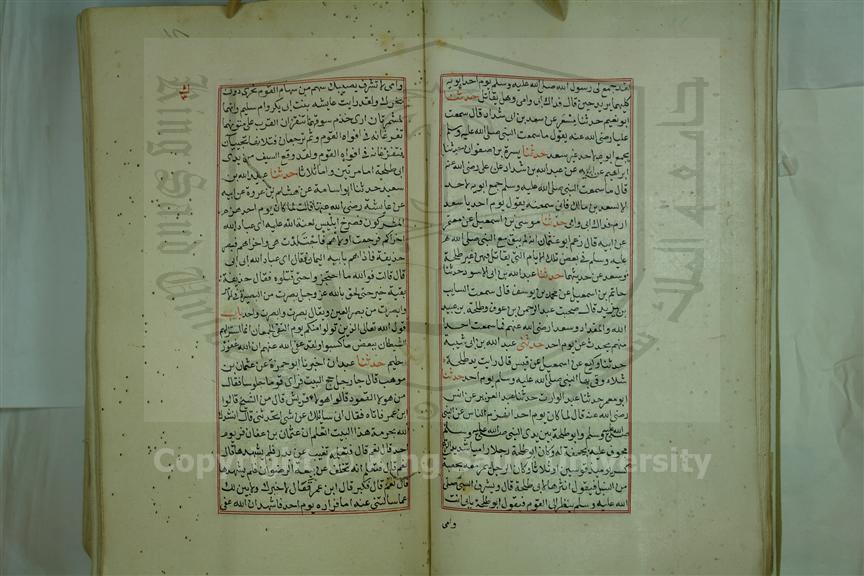 لقد جمع لي رسول الله صلى الله عليه وسلم يوم احد ابويه
كليهما يريد حين قال فداك ابي وامي وهو يقاتل حدثنا
ابو نعيم حدثنا مسعر عن سعد عن ابن شداد قال سمعت
عليا رضي الله عنه يقول ما سمعت النبي صلى الله عليه وسلم
يجمع ابويه لاحد غير سعد حدثنا يسرة بن صفوان حدثنا
ابراهيم عن ابيه عن عبد الله بن شداد عن علي رضي الله عنه
قال ما سمعت النبي صلى الله عليه وسلم جمع ابويه لاحد
الا لسعد بن مالك فاني سمعته يقول يوم احد يا سعد
ارم فداك ابي وامي حدثنا موسى بن اسمعيل عن معتمر
عن ابيه قال زعم ابو عثمان انه لم يبق مع النبي صلى الله
عليه وسلم في بعض تلك الايام التي يقاتل فيهن غير طلحة
وسعد عن حديثهما حدثنا عبد الله بن ابي الاسود حدثنا
حاتم بن اسمعيل عن محمد بن يوسف قال سمعت السايب
بن يزيد قال صحبت عبد الرحمن بن عوف وطلحة بن عبيد
الله والمقداد وسعدا رضي الله عنهم فما سمعت احدا
منهم يحدث عن يوم احد حدثني عبد الله بن ابي شيبة
حدثنا وكيع عن اسمعيل عن قيس قال رايت يد طلحة
شلاء وقى بها النبي صلى الله عليه وسلم يوم احد حدثنا
ابو معمر حدثنا عبد الوارث حدثنا عبد العزيز عن انس
رضي الله عنه قال لما كان يوم احد انهزم الناس عن النبي
صلى الله عليه وسلم وابو طلحة بين يدي النبي صلى الله عليه وسلم
مجوب عليه بحجفة له وكان ابو طلحة رجلا راميا شديد النزع
كسر يومئذ قوسين او ثلاثا وكان الرجل يمر معه بجعبة
من النبل فيقول انثرها لابي طلحة قال ويشرف النبي صلى
الله عليه وسلم ينظر الى القوم فيقول ابو طلحة بابي انت
وامي
وامي لا تشرف يصيبك سهم من سهام القوم نحري دون
نحرك ولقد رايت عايشة بنت ابي بكر وام سليم وانهما
لمشمرتان ارى خدم سوقهما تنقزان القرب على متونهما
تفرغانه في افواه القوم ثم ترجعان فتملآنها ثم تجيئان
فتفرغانه في افواه القوم ولقد وقع السيف من يدي
ابي طلحة اما مرتين واما ثلاثا حدثنا عبيد الله بن
سعيد حدثنا ابو اسامة عن هشام بن عروة عن ابيه
عن عايشة رضي الله عنها قالت لما كان يوم احد هزم
المشركون فصرخ ابليس لعنة الله عليه اي عباد الله
اخراكم فرجعت اولاهم فاجتلدت هي واخراهم فبصر
حذيفة فاذا هو بابيه اليمان فقال اي عباد الله ابي ابي
قال قالت فوالله ما احتجزوا حتى قتلوه فقال حذيفة
بقية خير حتى لحق بالله عز وجل بصرت من البصيرة في الامر
وابصرت من بصر العين ويقال بصرت وابصرت واحد باب
قول الله تعالى ان الذين تولوا منكم يوم التقى الجمعان انما استزلهم
الشيطان ببعض ما كسبوا ولقد عفى الله عنهم ان الله غفور
حليم حدثنا عبدان اخبرنا ابو حمزة عن عثمان بن
موهب قال جاء رجل حج البيت فراى قوما جلوسا فقال
من هولاء القعود قالوا هولاء قريش قال من الشيخ قالوا
ابن عمر فاتاه فقال اني سائلك عن شيء اتحدثني قال انشدك
بحرمة هذا البيت اتعلم ان عثمان بن عفان فر يوم
احد قال نعم قال فتعلمه تغيب عن بدر فلم يشهدها قال
نعم قال فتعلم انه تخلف عن بيعة الرضوان فلم يشهدها
قال نعم قال فكبر قال ابن عمر تعال لاخبرك ولابين لك
عما سالتني عنه اما فراره يوم احد فاشهد ان الله عفى
جامعة الملك
King Saud Univ
Copyright © King Saud University